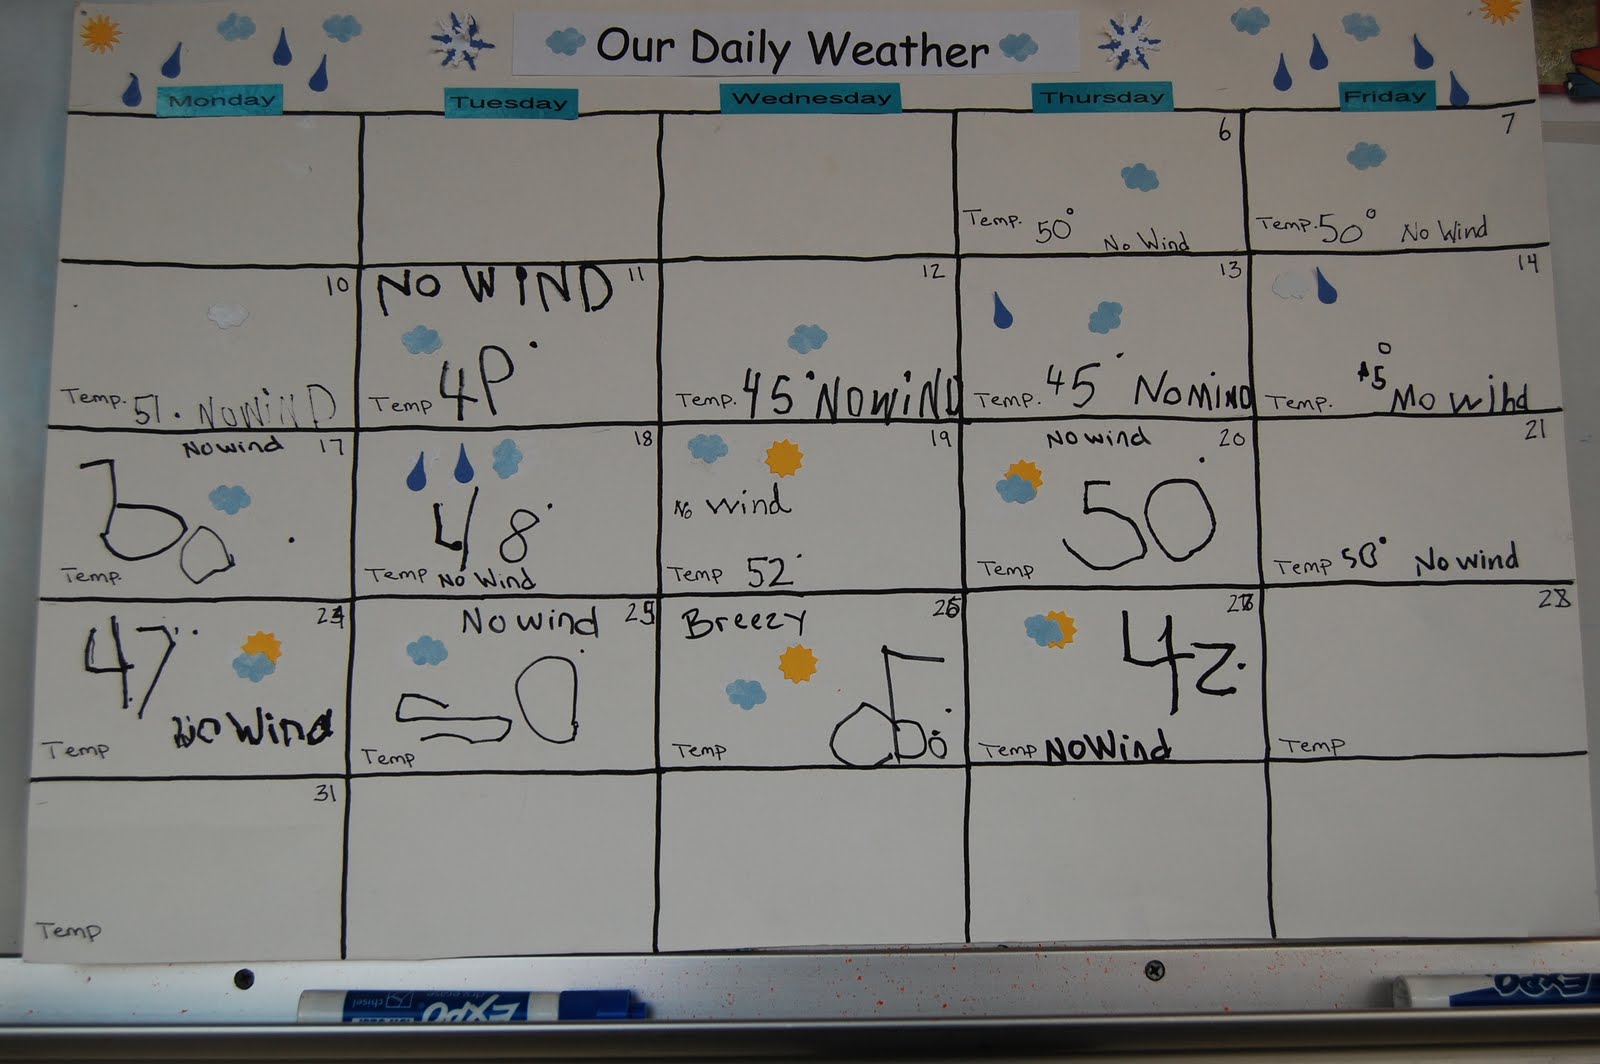 Our Daily Weather
Monday Tuesday Wednesday Thursday Friday
6
Temp. 50° No Wind
7
Temp. 50° No Wind
10
Temp. 51. NOWiND
11
NO WiND
Temp 4P°
12
Temp. 45° NOWiND
13
Temp. 45° NOMIND
14
Temp. 45° Mo wihd
17
No wind
Temp.
18
48°
Temp No Wind
19
No wind
Temp 52°
20
No wind
Temp 50°
21
Temp 50° No wind
24
47°
Temp No Wind
25
No wind
Temp 50°
26
Breezy
Temp
27
42°
Temp NoWind
28
Temp
31
Temp
EXPO
chisel
EXPO